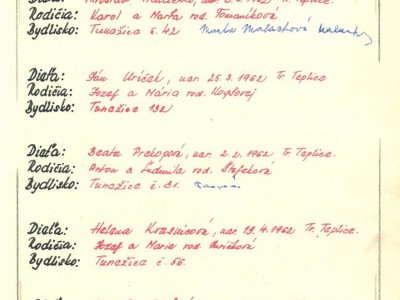 Rodičia: Karol a Marta rod. Tomaníková
Bydlisko: Tunežice č. 42 Marta Malachová
Dieťa: Ján Uríček, nar. 25. 3. 1962 Tr. Teplice
Rodičia: Jozef a Mária rod.
Bydlisko: Tunežice 132
Dieťa: Beata Prekopová, nar. 2. 2. 1962 Tr. Teplice.
Rodičia: Anton a Ľudmila rod. Štefeková
Bydlisko: Tunežice č. 81.
Dieťa: Helena Kvasnicová, nar. 19. 4. 1962 Tr. Teplice.
Rodičia: Jozef a Maria rod.
Bydlisko: Tunežice č. 56.